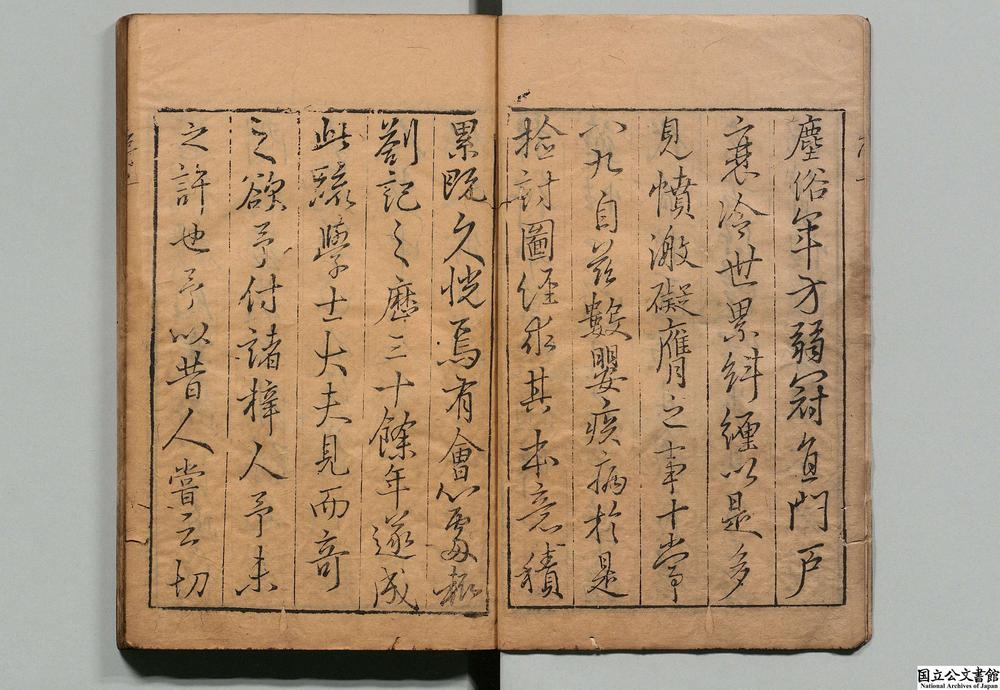 塵俗年方弱冠直門戸
衰冷世累糾纏以是多
見憤激礙膺之事十常
八九自茲數嬰疾病於是
撿討圖經求其本意積
累既久恍焉有會心處輙
劄記之歷三十餘年遂成
此疏學士大夫見而奇
之欲予付諸梓人予未
之許也予以昔人嘗云切
国立公文書館
National Archives of Japan